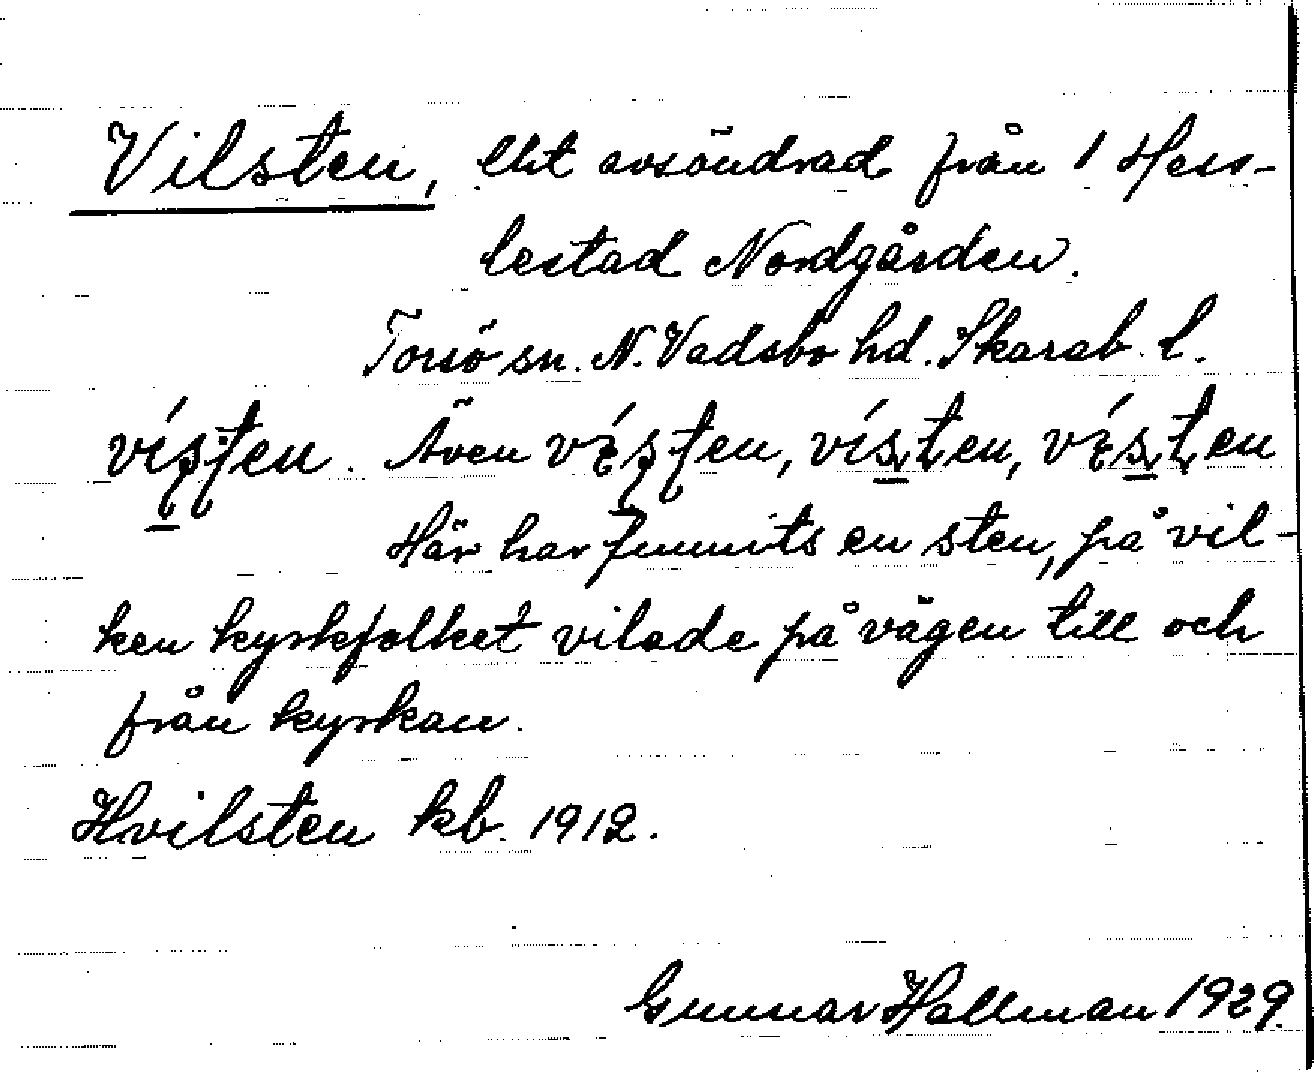 Vilsten, lht avsöndrad från 1 Hass-
lestad Nordgården.
Torsö sn. N. Vadsbo hd. Skarab. l.
Även
Här har funnits en sten, på vil-
ken kyrkfolket vilade på vägen till och
från kyrkan.
Hvilsten kb. 1912.
Gunnar Hallman 1929.